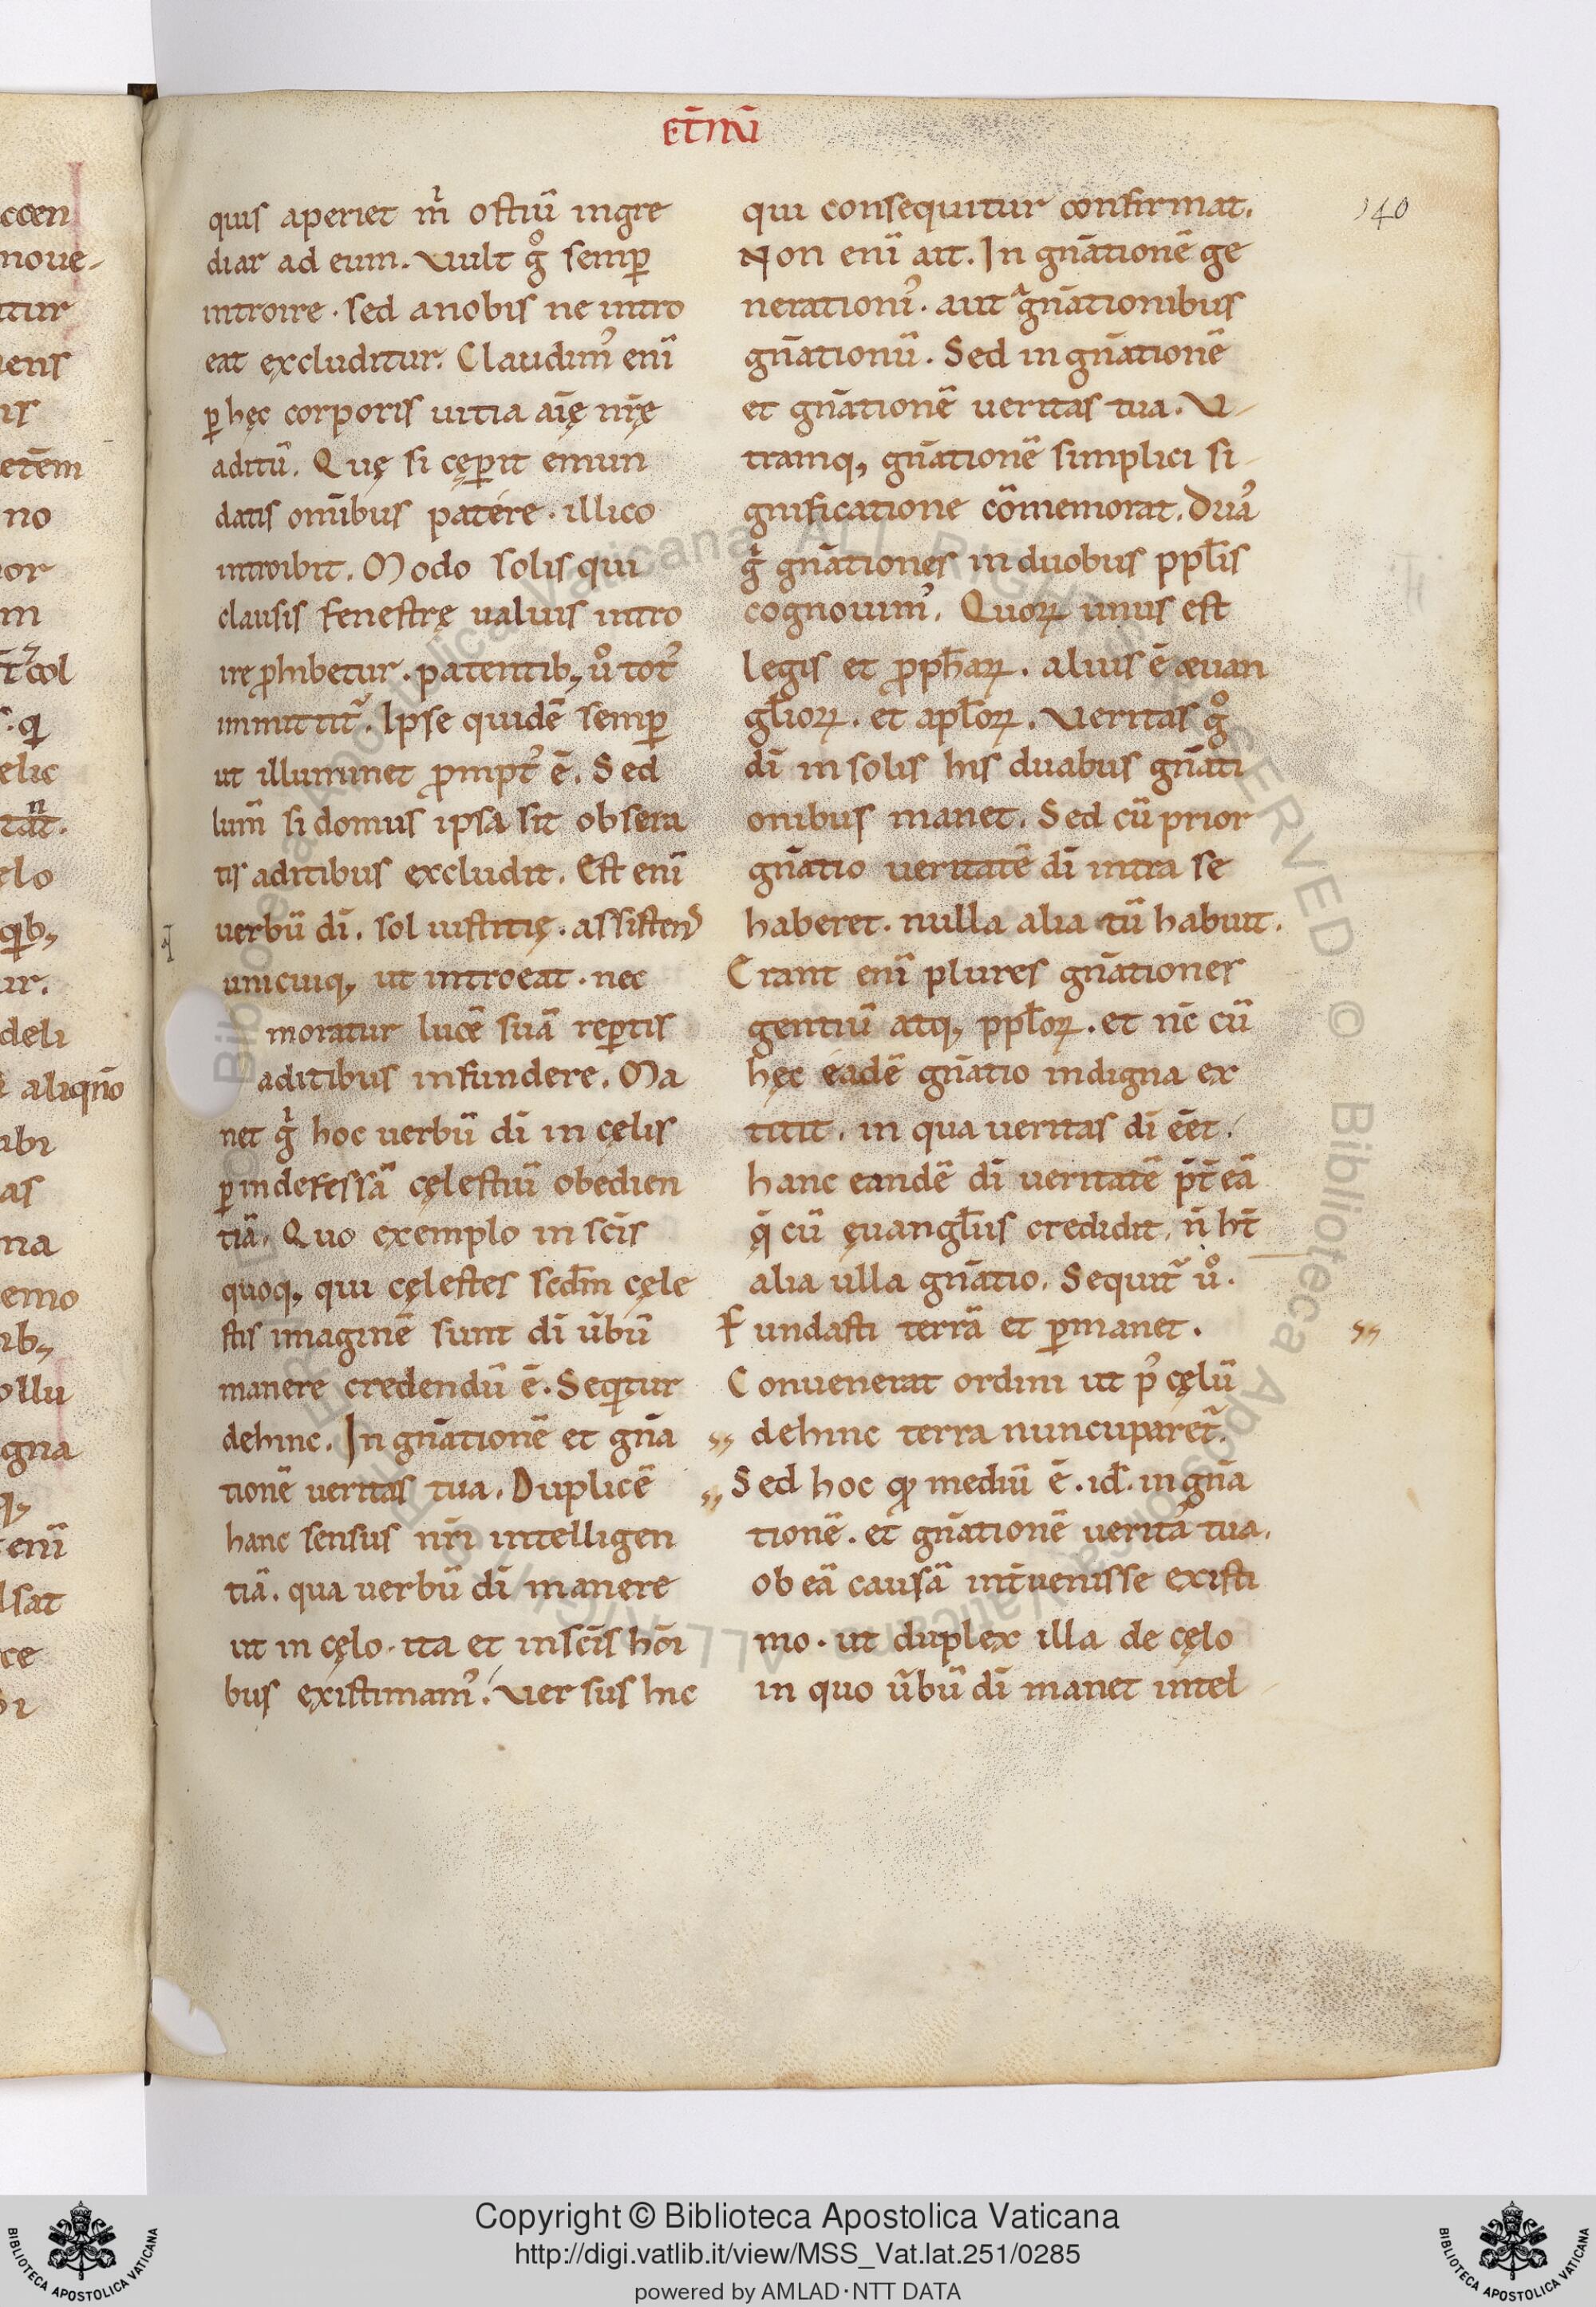 ET̄NŪ
140
quis aperiet m̄ ostiū ingre
diar ad eum. Vult g̊ semꝑ
introire. sed anobis ne intro
eat excluditur. Claudim᾿ enī
ꝑ hęc corporis uitia aīę nr̄ę
aditū. Quę si cęꝑit emun
datis om̄ibus patere. illico
introibit. Modo solis qui
clausis fenestrę ualuis intro
ire ꝓhibetur. patentib; ů tot᾿
immittit᷑. Ipse quidē semꝑ
ut illuminet ꝓmpt᾿ ē. Sed
lum̄ si domus ipsa sit obsera
tis aditibus excludit. Est enī
uerbū dī. sol iustitię. assistens
unicuiq; ut introeat. nec
moratur lucē suā reꝑtis
aditibus infundere. Ma
net g̓ hoc uerbū dī in cęlis
ꝑ indefessā cęlestiū obedien
tiā. Quo exemplo in scīs
quoq; qui cęlestes scd̄m cęle
stis imaginē sunt dī ūbū
manere credendū ē. Seqͥtur
dehinc. In gn̄ationē et gn̄a
tionē ueritas tua. Duplicē
hanc sensus nr̄i intelligen
tiā. qua uerbū dī manere
ut in cęlo. ita et in scīs hōi
bus existimam᾿. Versus hic
qui consequitur confirmat.
Non enī ait. In gn̄ationē ge
nerationū᾿. aut gn̄ationibus
gn̄ationū. Sed in gn̄ationē
et gn̄ationē ueritas tua. V-
tramq; gn̄ationē simplici si-
gnificatione cōmemorat. Duas
g̓ gn̄ationes in duobus ppl̄is
cognouim᾿. Quoꝝ unus est
legis et ꝓph̄aꝝ. alius ē æuan
gl̄ioꝝ. et apl̄oꝝ. Veritas g̊
dī in solis his duabus gn̄ati
onibus manet. Sed cū prior
gn̄atio ueritatē dī intra se
haberet. nulla alia tū habuit.
Erant enī plures gn̄ationes
gentiū atq; ppl̄oꝝ. et nc̄ cū
hęc eadē gn̄atio indigna ex
titit. in qua ueritas dī ēet.
hanc eandē dī ueritatē p̄t̄ eā
q̄ cū ęuangl̄iis credidit. n̄ ht̄
alia ulla gn̄atio. Sequit᷑ ů.
Fundasti terrā et ꝑmanet.
Conuenerat ordini ut p᾿ cęlū
dehinc terra nuncuparet᷑.
Sed hoc qͦ mediū ē. id. in gn̄a
tionē. et gn̄ationē ueritas tua.
ob eā causā int̄uenisse existi
mo. ut duplex illa de cęlo
in quo ūbū dī manet intel-
Copyright © Biblioteca Apostolica Vaticana
http://digi.vatlib.it/view/MSS_Vat.lat.251/0285
powered by AMLAD·NTT DATA
BIBLIOTECA APOSTOLICA VATICANA
BIBLIOTECA APOSTOLICA VATICANA